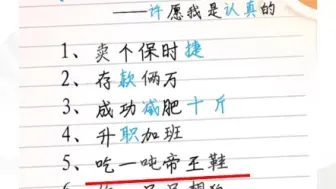 ——许愿我是认真的
1、卖个保时捷
2、存款俩万
3、成功减肥十斤
4、升职加班
5、吃一吨帝王鞋